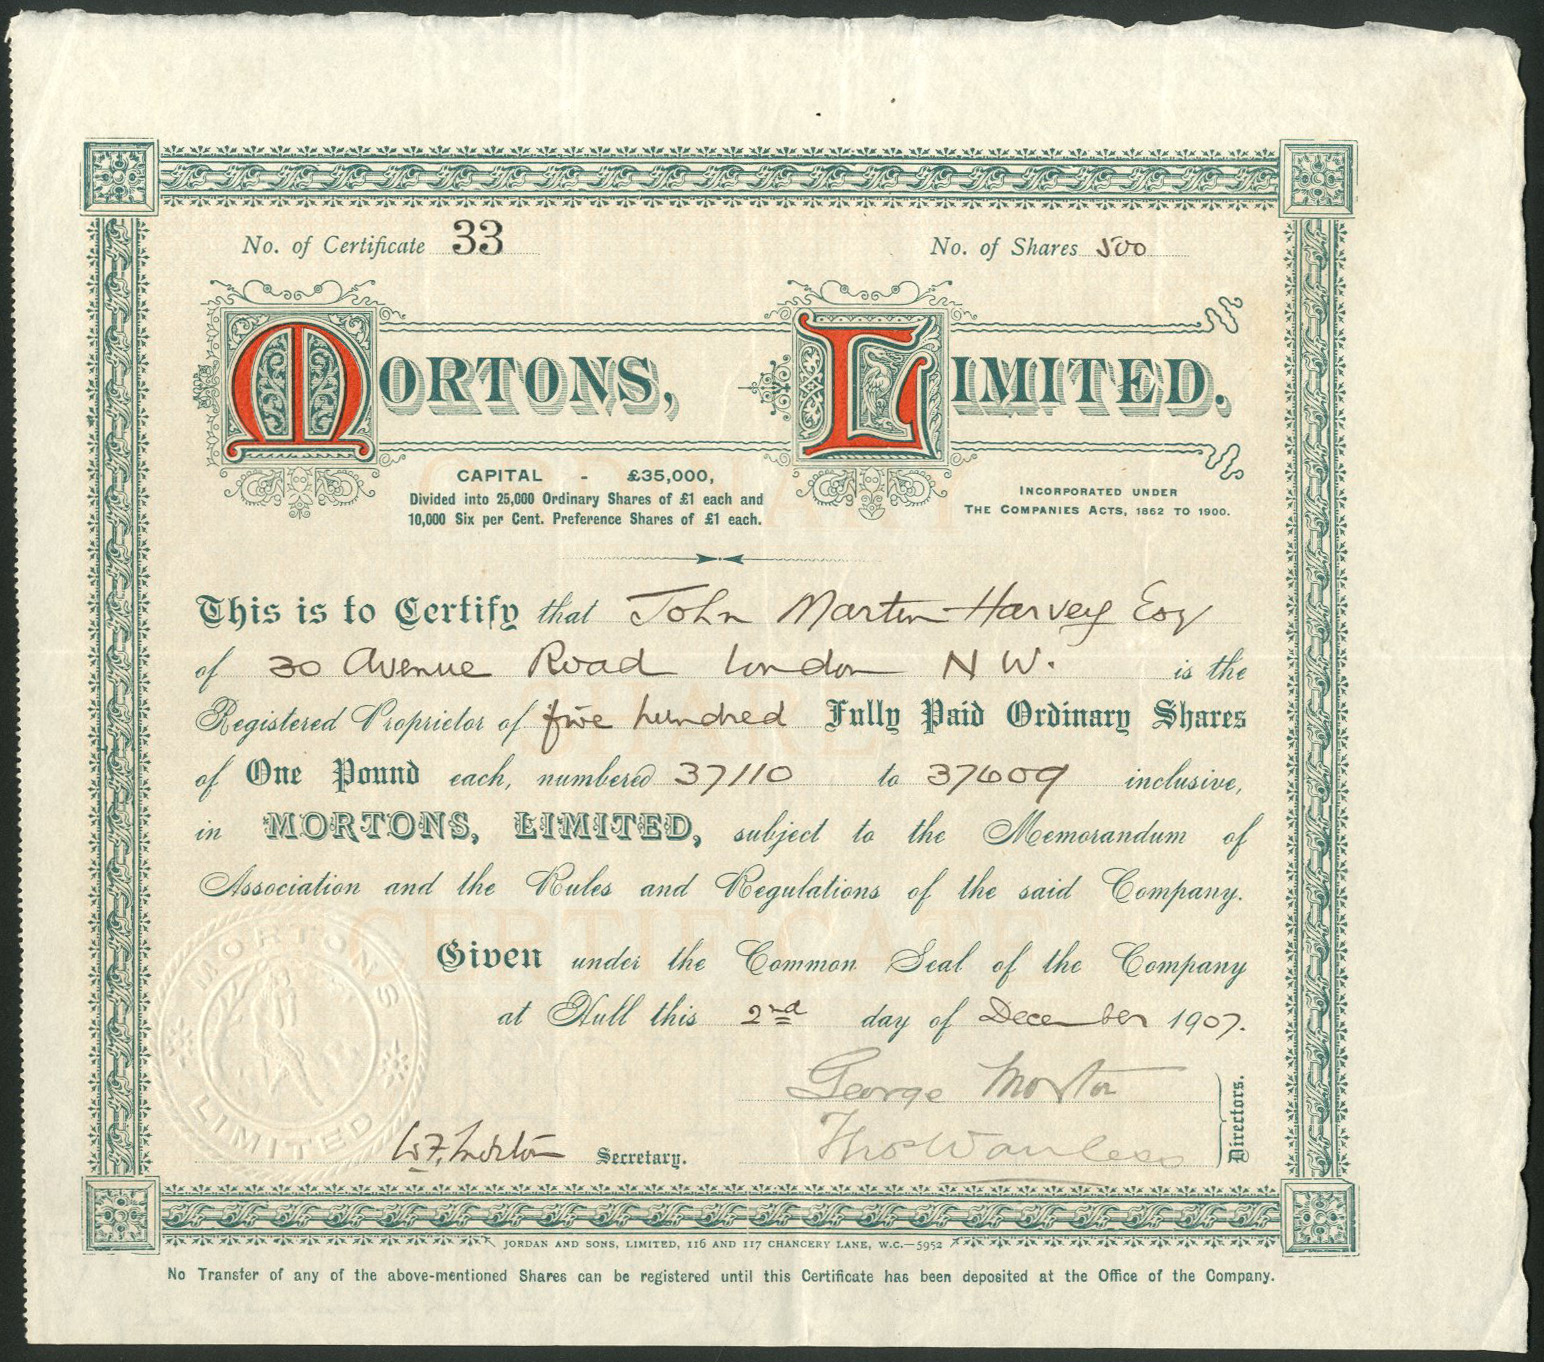 No. of Certificate 33
No. of Shares 500
MORTONS, LIMITED.
CAPITAL - £35,000,
Divided into 25,000 Ordinary Shares of £1 each and
10,000 Six per Cent. Preference Shares of £1 each.
INCORPORATED UNDER
THE COMPANIES ACTS, 1862 TO 1900.
ORDINARY
SHARE
CERTIFICATE
This is to Certify that John Martin-Harvey Esq
of 30 Avenue Road London N W. is the
Registered Proprietor of five hundred Fully Paid Ordinary Shares
of One Pound each, numbered 37110 to 37609 inclusive,
in MORTONS, LIMITED, subject to the Memorandum of
Association and the Rules and Regulations of the said Company.
Given under the Common Seal of the Company
at Hull this 2nd day of December 1907.
MORTONS
LIMITED
George Morton
Thos Wanless
Directors.
W.F. Morton Secretary.
JORDAN AND SONS, LIMITED, 116 AND 117 CHANCERY LANE, W.C.—5952
No Transfer of any of the above-mentioned Shares can be registered until this Certificate has been deposited at the Office of the Company.